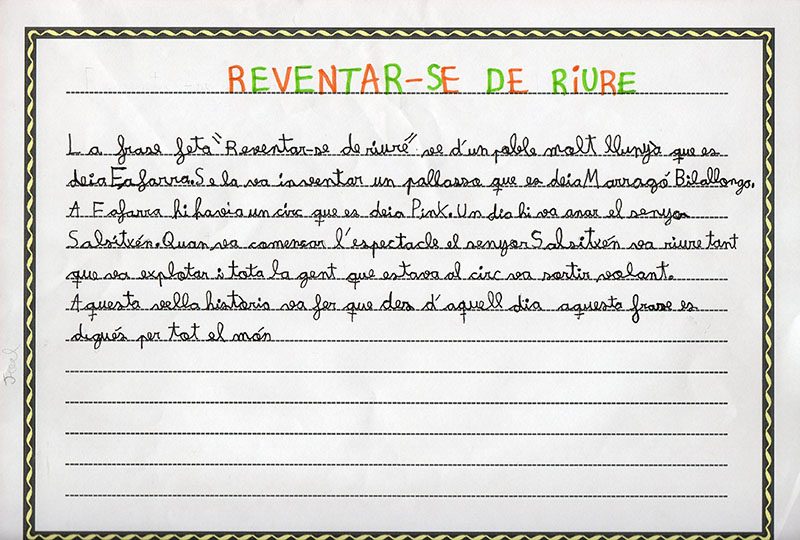 REVENTAR-SE DE RIURE
La frase feta "Reventar-se de riure" ve d'un poble molt llunyà que es
deia Fafarra. Se la va inventar un pallasso que es deia Marragó Bilallongo.
A Fafarra hi havia un circ que es deia Pink. Un dia hi va anar el senyor
Salsitxén. Quan va començar l'espectacle el senyor Salsitxén va riure tant
que va explotar i tota la gent que estava al circ va sortir volant.
Aquesta vella història va fer que des d'aquell dia aquesta frase es
digués per tot el món
Joel